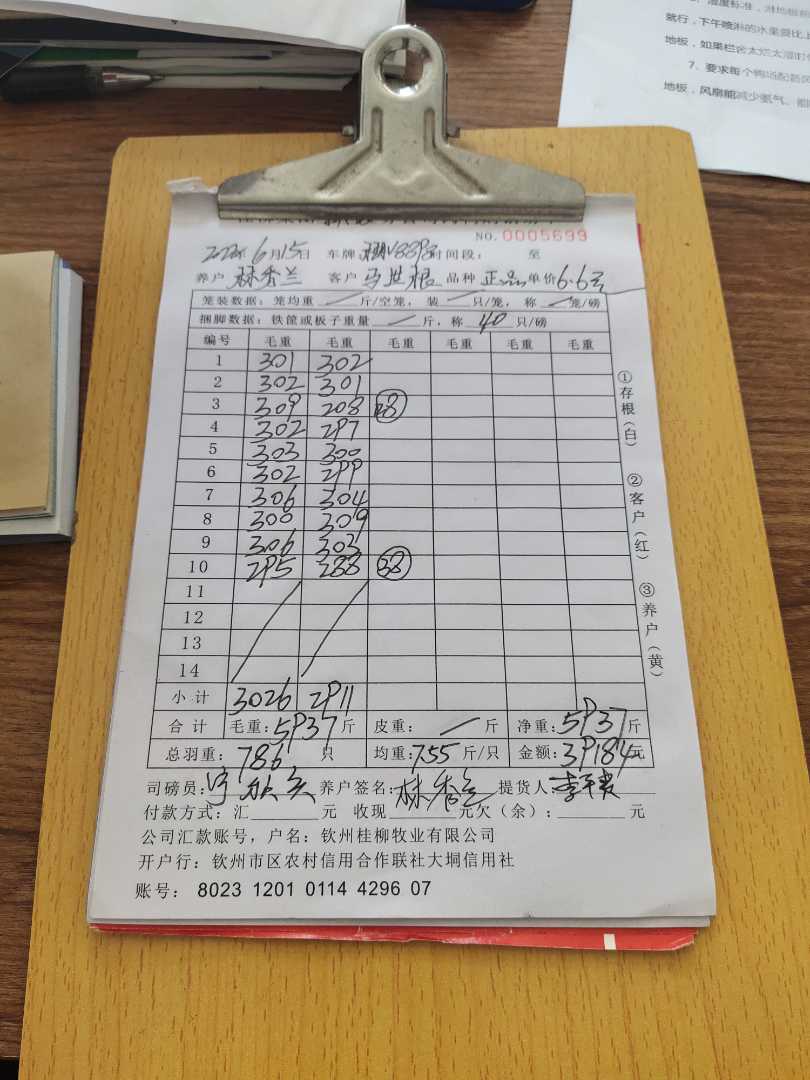 湿度标准,
就行,下午喷淋的水量要比上
地板,如果栏舍太烂太湿时
7、要求每个鸭场配备风
地板,风扇能减少氨气、
NO.0005699
6月15日 车牌 时间段: 至
养户 林香兰 客户 马世根 品种 正品 单价6.6元
笼装数据:笼均重 / 斤/空笼,装 / 只/笼,称 / 笼/磅
捆脚数据:铁筐或板子重量 / 斤,称 40 只/磅
编号 毛重 毛重 毛重 毛重 毛重 毛重
1 301 302
2 302 301
3 309 208 28
4 302 297
5 303 300
6 302 299
7 306 304
8 300 309
9 306 303
10 295 288 38
11
12
13
14
小计 3026 2911
合计 毛重:5937斤 皮重: / 斤 净重:5937斤
总羽重: 786 只 均重:755斤/只 金额:39184元
司磅员: 养户签名: 林香兰 提货人
付款方式:汇 元 收现 元欠(余): 元
公司汇款账号,户名:钦州桂柳牧业有限公司
开户行:钦州市区农村信用合作联社大垌信用社
账号: 8023 1201 0114 4296 07
①存根(白)
②客户(红)
③养户(黄)